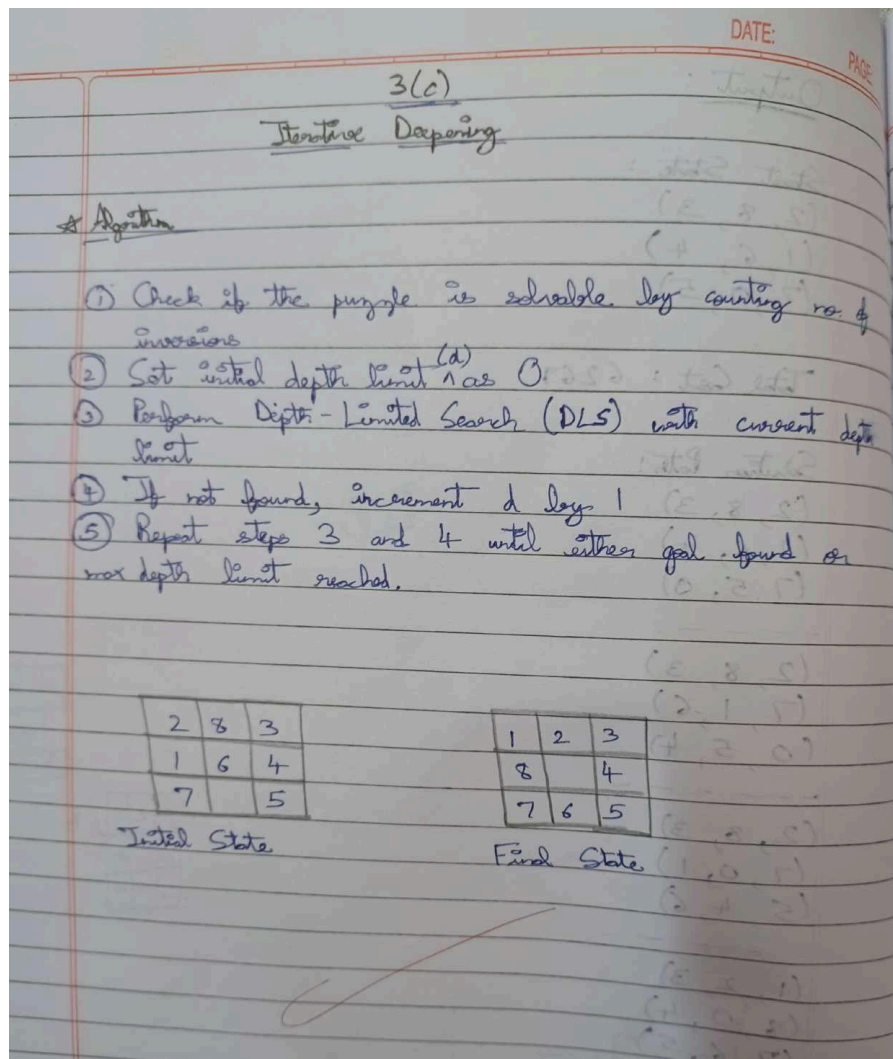 DATE:
PAGE:
3(c)
Iterative Deepening
* Algorithm
① Check if the puzzle is solvable by counting no. of
inversions
② Set initial depth limit ^(d) as 0
③ Perform Depth-Limited Search (DLS) with current depth
limit
④ If not found, increment d by 1
⑤ Repeat steps 3 and 4 until either goal found or
max depth limit reached.
2 8 3
1 6 4
7 5
Initial State
1 2 3
8 4
7 6 5
Final State